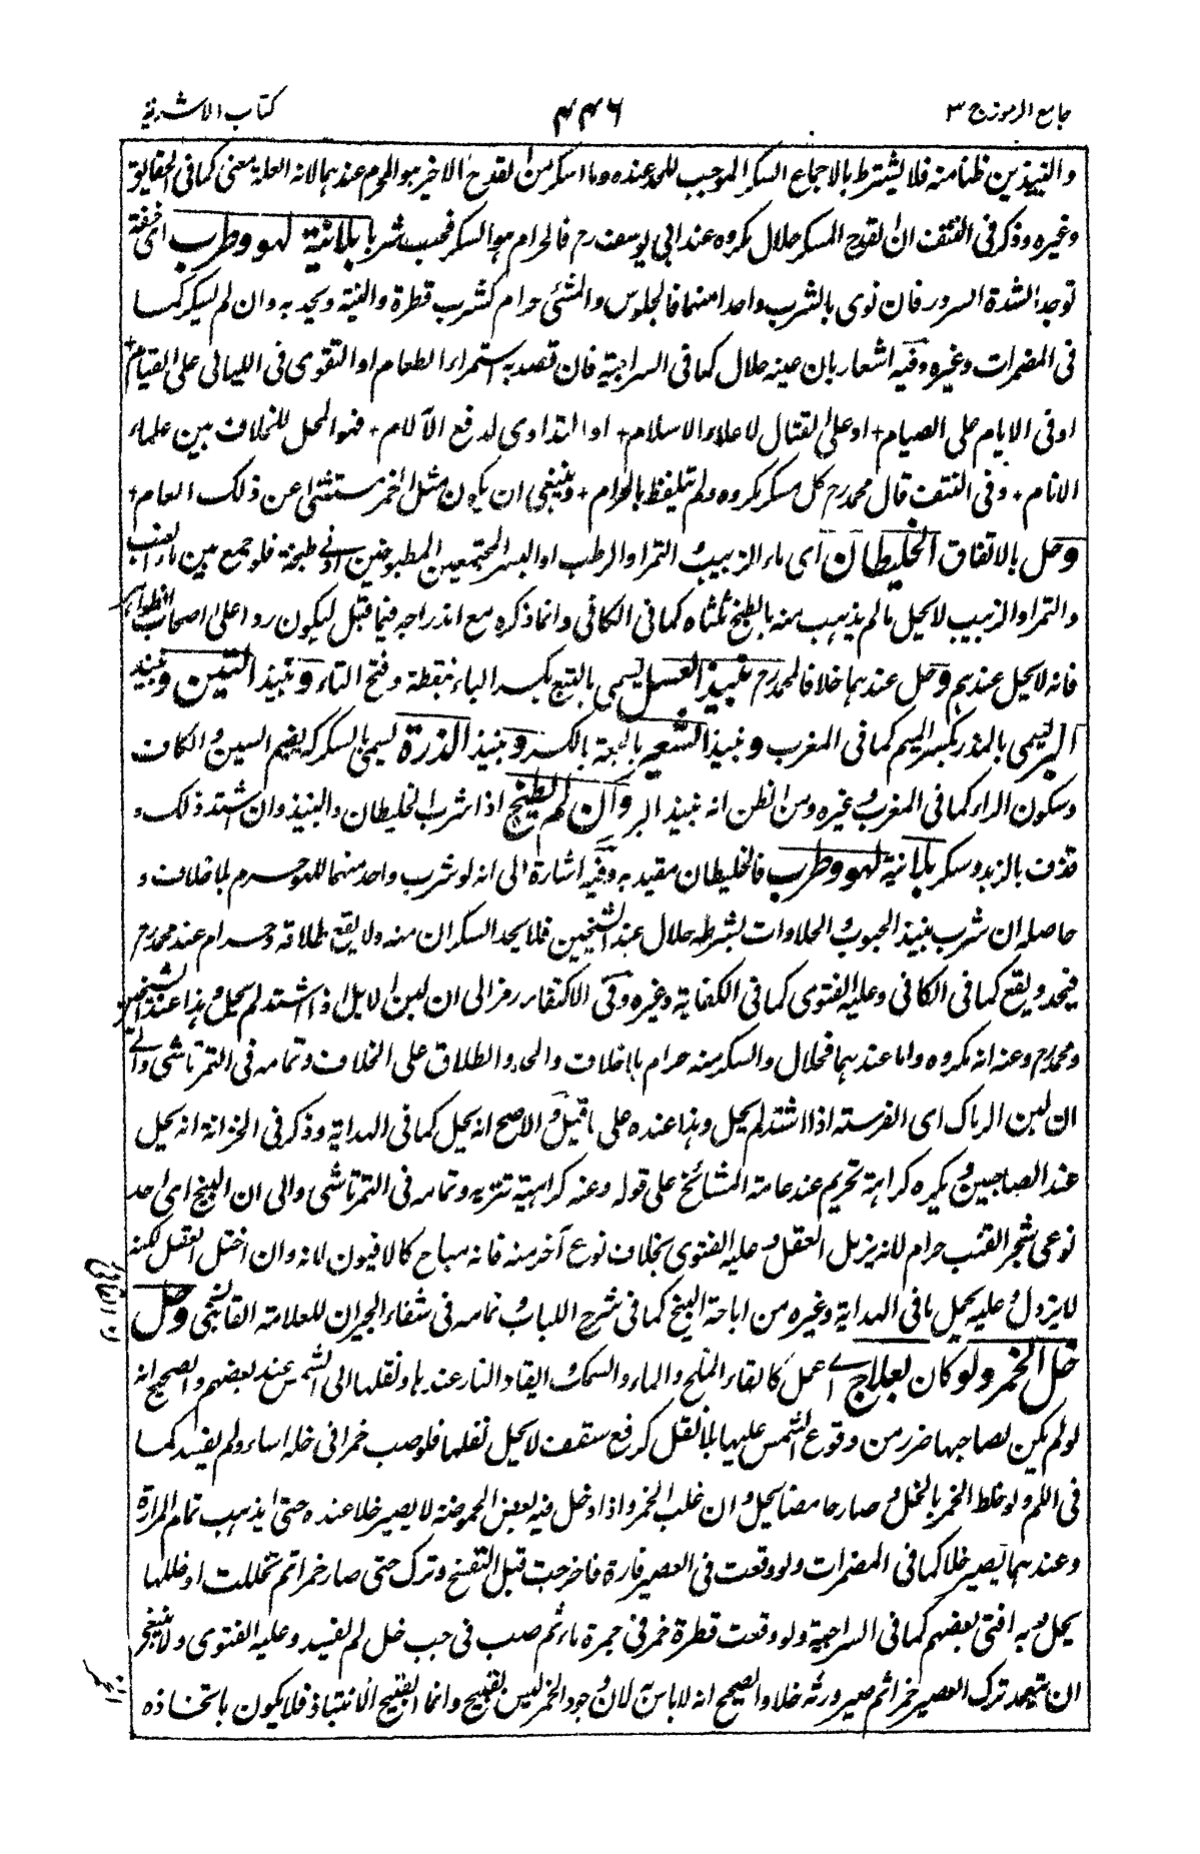 جامع الرموز ج ٣
٤٤٦
كتاب الاشربة
والنبيذين ظنا منه فلا يشترط بالاجماع السكر الموجب للحد عنده وما اسكر من القدح الاخير هو المحرم عندهما لانه العلة معنى كما فى الحقايق
وغيره وذكر فى النتف ان القدح المسكر حلال مكروه عند ابى يوسف رح فالحرام هو السكر فحسب شربا بلا نية لهو وطرب اى خفة
توجد الشدة السرور فان نوى بالشرب واحدا منهما فالجلوس والمشى حرام كشرب قطرة والفتية ويحد به وان لم يسكر كما
فى المضمرات وغيره وفيه اشعار بان عينه حلال كما فى السراجية فان قصد به استمراء الطعام او التقوى فى الليالى على القيام
او فى الايام على الصيام او على القتال لاعلاء الاسلام او التداوى لدفع الآلام فهو المحل للخلاف بين علماء
الانام وفى النتف قال محمد رح كل مسكر مكروه ولم يتلفظ بالحرام وينبغى ان يكون مثل الخمر مستثنى عن ذلك العام
وحل بالاتفاق الخليطان اى ماء الزبيب والتمر او الرطب او البسر المجتمعين المطبوخين ادنى طبخة فلو جمع بين ماء العنب
والتمر او الزبيب لا يحل ما لم يذهب منه بالطبخ ثلثاه كما فى الكافى وانما ذكره مع اندراجه فيما قبل ليكون ردا على اصحاب الظواهر
فانه لا يحل عندهم وحل عندهما خلافا لمحمد رح نبيذ العسل يسمى بالبتع بكسر الباء بنقطة وفتح التاء ونبيذ التين ونبيذ
البر يسمى بالمذر بكسر الميم كما فى المغرب ونبيذ الشعير بالجعة بالكسر ونبيذ الذرة يسمى بالسكركة بضم السين والكاف
وسكون الراء كما فى المغرب وغيره ومن الظن انه نبيذ البر وان لم يطبخ اذا شرب الخليطان والنبيذ وان اشتد ذلك و
قذف بالزبد وسكر بلا نية لهو وطرب فالخليطان مقيد به وفيه اشارة الى انه لو شرب واحد منهما للهو حرم بلا خلاف و
حاصله ان شرب نبيذ الحبوب والحلاوات بشرطه حلال عند الشيخين فلا يحد السكران منه ولا يقع طلاقه وحرام عند محمد رح
فيحد ويقع كما فى الكافى وعليه الفتوى كما فى الكفاية وغيره وفى الاكتفاء رمز الى ان لبن الابل اذا اشتد لم يحل وهذا عند الشيخين
ومحمد رح وعنه انه مكروه واما عندهما فحلال والسكر منه حرام بلا خلاف والحد والطلاق على الخلاف وتمامه فى التمرتاشى والى
ان لبن الرماك اى الفرسة اذا اشتد لم يحل وهذا عنده على ما قيل والاصح انه يحل كما فى الهداية وذكر فى الخزانة انه يحل
عند الصاحبين ويكره كراهة تحريم عند عامة المشائخ على قوله وعنه كراهية تنزيه وتمامه فى التمرتاشى والى ان البنج اى احد
نوعى شجر القنب حرام لانه يزيل العقل وعليه الفتوى بخلاف نوع آخر منه فانه مباح كالافيون لانه وان اختل العقل لكنه
لا يزول وعليه يحمل ما فى الهداية وغيره من اباحة البنج كما فى شرح اللباب وتمامه فى شفاء الجيران للعلامة وحل
خل الخمر ولو كان بعلاج اى عمل كالقاء الملح والماء والسمك وايقاد النار عندها ونقلها الى الشمس عند بعضهم والصحيح انه
لو لم يكن لصاحبها ضرر من وقوع الشمس عليها بلا نقل كرفع سقف لا يحل نقلها فلو صب خمرا فى خله اساء ولم يفسد كما
فى اللم ولو خلط الخمر بالخل وصار حامضا يحل وان غلب الخمر واذا دخل فيه بعض الحموضة لا يصير خلا عنده حتى يذهب تمام المرارة
وعندهما يصير خلا كما فى المضمرات ولو وقعت فى العصير فارة فاخرجت قبل التفسخ وترك حتى صار خمرا ثم تخللت او خللها
يحل وبه افتى بعضهم كما فى السراجية ولو وقعت قطرة خمر فى جرة ماء ثم صب فى حب خل لم يفسد وعليه الفتوى ولا ينبغى
ان يتعمد ترك العصير خمرا ثم صيرورته خلا والصحيح انه لا باس لان وجود الخمر ليس بقبيح وانما القبيح الانتباذ فلا يكون باتخاذه